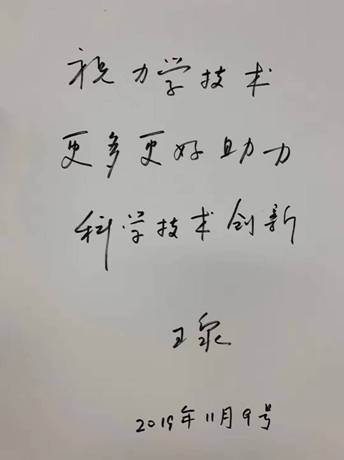 祝力学技术
更多更好助力
科学技术创新
王泉
2019年11月9号